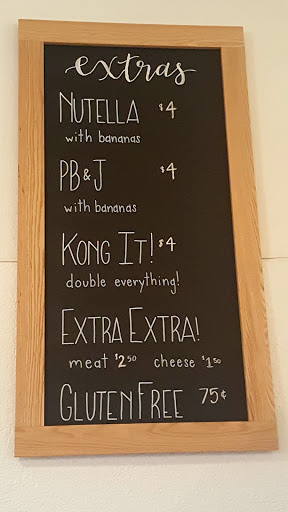 extras
NUTELLA $4
with bananas
PB&J $4
with bananas
KONG IT! $4
double everything!
EXTRA EXTRA!
meat $2.50 cheese $1.50
GLUTEN FREE 75¢